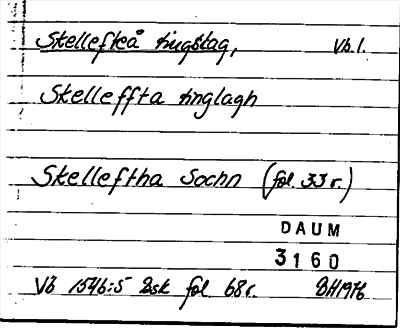 Skellefteå tingslag, Vb.l.
Skelleffta tinglagh
Skelleftha Sochn (fol. 33 r.)
DAUM
3160
Vb 1546:5 Bsk fol. 68 r. BH1976